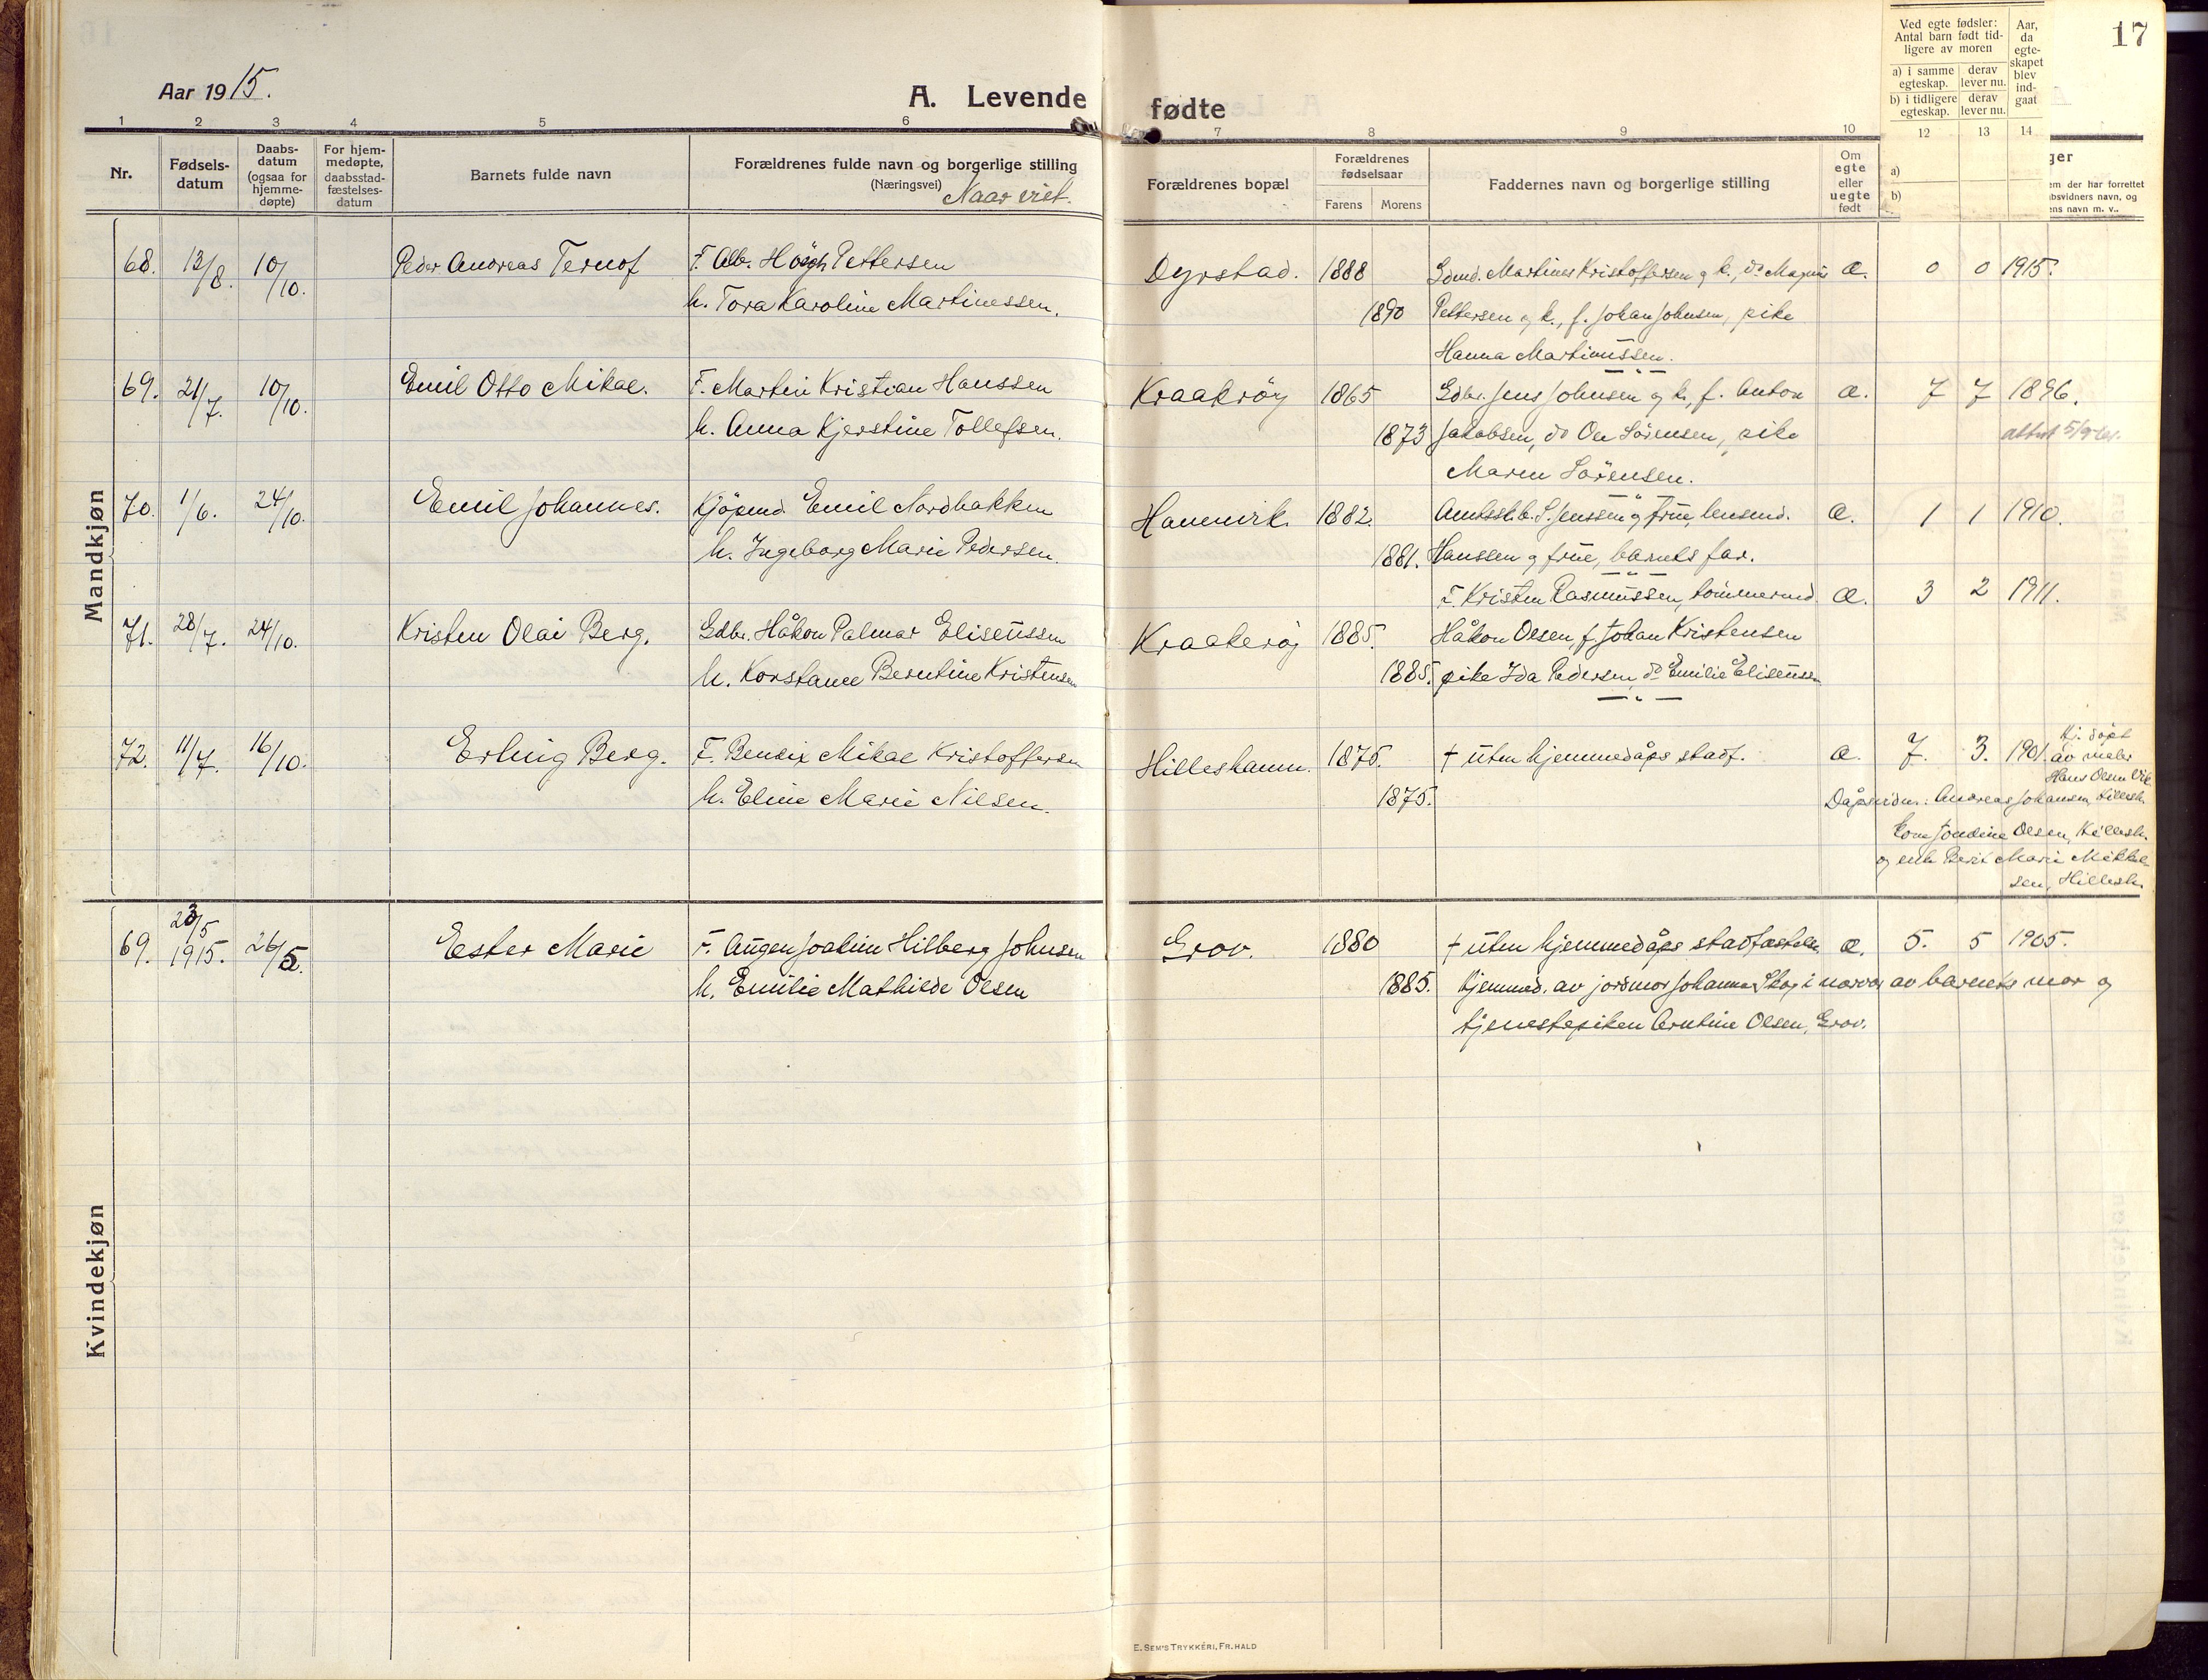 Aar 1915.
A. Levende
fødte
17
Ved egte fødsler:
Antal barn født tid-
ligere av moren
a) i samme egteskap.
derav lever nu.
b) i tidligere egteskap.
derav lever nu.
Aar, da egte-skapet blev ind-gaat
1 2 3 4 5 6 7 8 9 10 12 13 14
Nr.
Fødsels-
datum
Daabs-
datum
(ogsaa for
hjemme-
døpte)
For hjem-
medøpte,
daabsstad-
fæstelses-
datum
Barnets fulde navn
Forældrenes fulde navn og borgerlige stilling
(Næringsvei)
Forældrenes bopæl
Forældrenes
fødselsaar
Farens Morens
Faddernes navn og borgerlige stilling
Om
egte
eller
uegte
født
a)
b)
ger
em der har forrettet
absvidners navn, og
ens navn m. v.
Mandkjøn
68. 13/8. 10/10. Peder Andreas Ternof F. Alb. Høegh Pettersen Dyrstad. 1888 Gdmd. Martines Kristoffersen og k., do Magnus æ. 0 0 1915.
h. Tora Karoline Martinessen. 1890 Pettersen og k., f. Johan Johnsen, pike
Hanna Martinussen.
69. 21/7. 10/10. Emil Otto Mikal. F. Martin Kristian Hanssen Kraakrøy 1865 Gdbr. Jens Johnsen og k., f. Anton æ. 7 7 1896.
h. Anna Kjerstine Tollefsen. 1873 Jakobsen, do Ole Sørensen, pike
Maren Sørensen.
70. 1/6. 24/10. Emil Johannes. Kjøpmd. Emil Nordbakken Hamnvik 1882. Amtssk.b. S. Jenssen og frue, lensmd. æ. 1 1 1910.
h. Ingeborg Marie Pedersen. 1881. Hanssen og frue, barnets far.
F. Kristen Rasmussen, tømmermd. æ. 3 2 1911.
71. 28/7. 24/10. Kristen Olai Berg. Gdbr. Håkon Palmar Eliseussen Kraakerøy 1885. Håkon Olsen, f. Johan Kristensen
h. Konstance Berntine Kristensen 1885. pike Ida Pedersen, do Emilie Eliseussen
72. 11/7. 16/10. Erling Berg. F. Bendix Mikal Kristoffersen Hilleshamn. 1875. † uten hjemmedåps stadf. æ. 7. 3. 1901. Hj. døpt
av maler
Hans Olsen Vik.
h. Eline Marie Nilsen. 1875. Dåpsvidn.: Andreas Johansen, Hillesh.
Kone Jondine Olsen, Hillesh.
og enke Berit Marie Mikkel-
sen, Hillesh.
Kvindekjøn
69. 23/5 1915. 26/5. Ester Marie F. Augen Joakim Hilberg Johnsen Grov. 1880 † uten hjemmedåps stadfæstelse æ. 5. 5 1905.
h. Emilie Mathilde Olsen 1885. Hjemmed. av jordmor Johanna Skog i nærvær av barnets mor og
tjenestepiken Berntine Olsen, Grov.
E. SEM'S TRYKKERI, FR.HALD